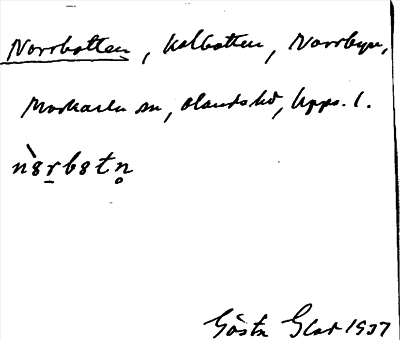 Norrbotten, Kolbotten, Norrbyn,
Morkarla sn, Olands hd, Upps. l.
ǹɞrbɞtn̥
Gösta Glad 1937